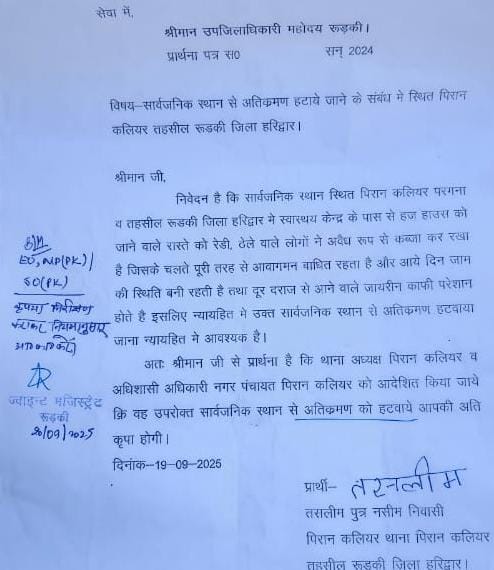 सेवा में,
श्रीमान उपजिलाधिकारी महोदय रूड़की।
प्रार्थना पत्र स0 सन् 2024
विषय–सार्वजनिक स्थान से अतिकमण हटाये जाने के संबंध मे स्थित पिरान
कलियर तहसील रूडकी जिला हरिद्वार।
श्रीमान जी,
निवेदन है कि सार्वजनिक स्थान स्थित पिरान कलियर परगना
व तहसील रूडकी जिला हरिद्वार मे स्वारथय केन्द्र के पास से हज हाउस को
जाने वाले रास्ते को रेडी, ठेले वाले लोगों ने अवैध रूप से कब्जा कर रखा
है जिसके चलते पूरी तरह से आवागमन बाधित रहता है और आये दिन जाम
की स्थिति बनी रहती है तथा दूर दराज से आने वाले जायरीन काफी परेशान
होते है इसलिए न्यायहित मे उक्त सार्वजनिक स्थान से अतिकमण हटवाया
जाना न्यायहित मे आवश्यक है।
अतः श्रीमान जी से प्रार्थना है कि थाना अध्यक्ष पिरान कलियर व
अधिशासी अधिकारी नगर पंचायत पिरान कलियर को आदेशित किया जाये
कि वह उपरोक्त सार्वजनिक स्थान से अतिकमण को हटवाये आपकी अति
कृपा होगी।
दिनांक–19-09-2025
प्रार्थी– तसलीम
तसलीम पुत्र नसीम निवासी
पिरान कलियर थाना पिरान कलियर
तहसील रूडकी जिला हरिद्वार।
EO, NP(PK)/
SO(PK)
कृपया निरीक्षण
नियमानुसार
ज्वाइन्ट मजिस्ट्रेट
रूड़की
20/09/2025